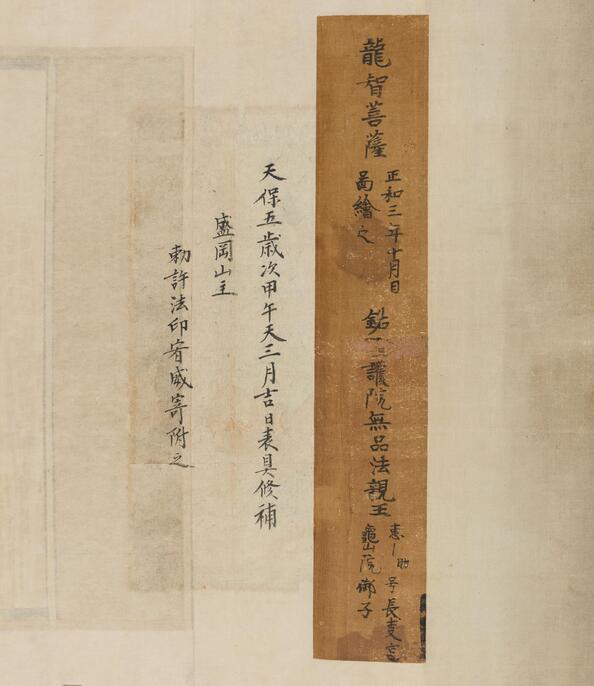 龍智菩薩
正和三年十月日
啚繪之
讃院無品法親王
惠助 号長
龜山院御子
天保五歳次甲午天三月吉日表具修補
盛岡山主
勅許法印宥威寄附之